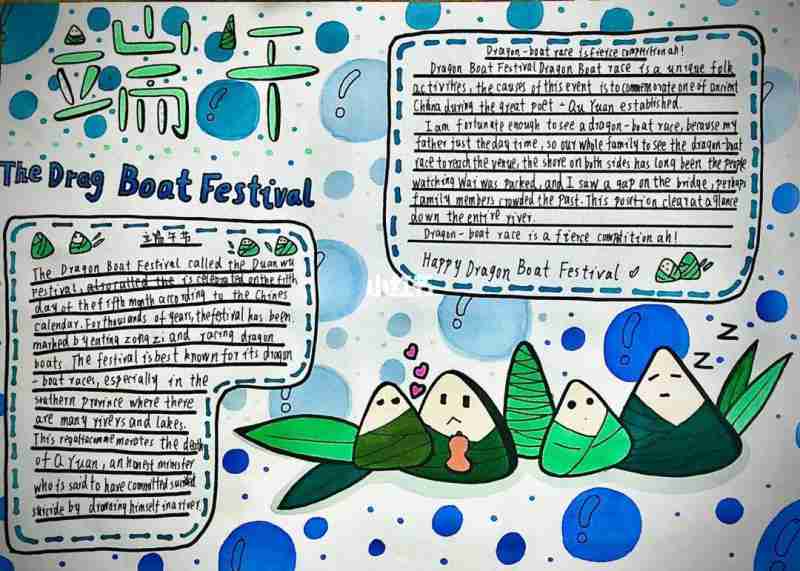 端午
The Drag Boat Festival
端午节
The Dragon Boat Festival called the Duanwu
Festival, also called the is celebrated on the fifth
day of the fifth month according to the Chines
calendar. For thousands of years, the festival has been
marked by eating zong zi and racing dragon
boats. The festival is best known for its dragon
-boat races, especially in the
southern province where there
are many rivers and lakes.
This regatta commemorates the death
of Qu Yuan, an honest minister
who is said to have committed
suicide by drowning himself in a river.
Dragon-boat race is fierce competition ah!
Dragon Boat Festival Dragon Boat race is a unique folk
activities, the causes of this event is to commemorate one of ancient
China during the great poet - Qu Yuan established.
I am fortunate enough to see a dragon-boat race, because my
father just the day time, so our whole family to see the dragon-boat
race to reach the venue, the shore on both sides has long been the people
watching Wai was parked, and I saw a gap on the bridge, perhaps
family members crowded the past. This position clear at a glance
down the entire river.
Dragon-boat race is a fierce competition ah!
Happy Dragon Boat Festival
z
z
z